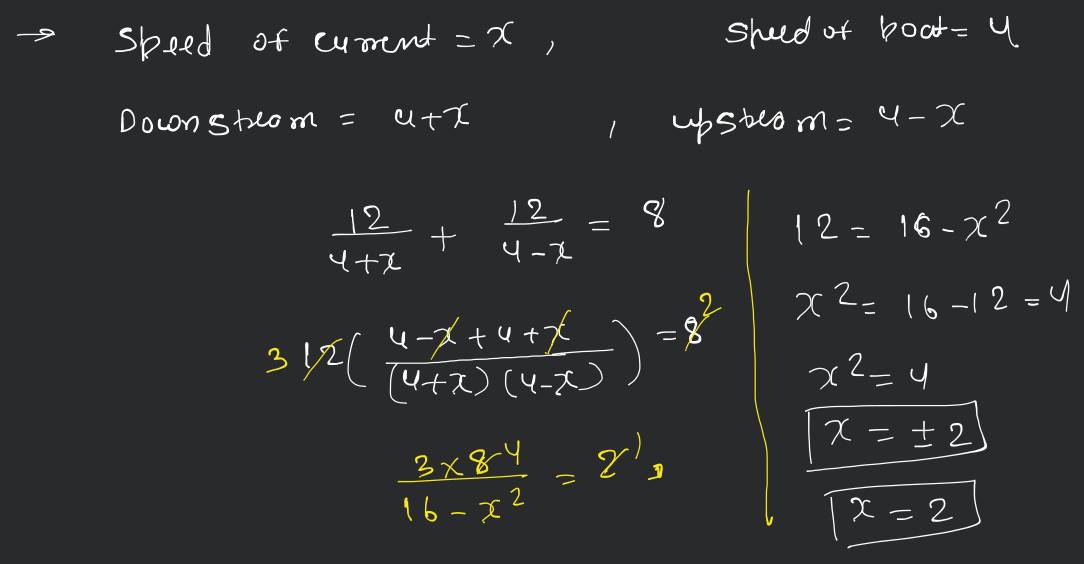 → Speed of current = x , Speed of boat = 4
Downstream = 4+x , upstream = 4-x
12/(4+x) + 12/(4-x) = 8
3 12( (4-x+4+x)/((4+x)(4-x)) ) = 8 2
(3×8 4)/(16-x²) = 2 1
12 = 16-x²
x² = 16-12 = 4
x² = 4
x = ±2
x = 2